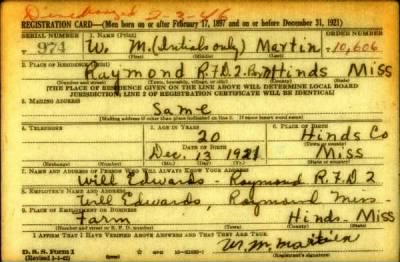 Discharged
REGISTRATION CARD—(Men born on or after February 17, 1897 and on or before December 31, 1921)
SERIAL NUMBER 1. NAME (Print) ORDER NUMBER
974 W. M. (Initials only) Martin 10,606
2. PLACE OF RESIDENCE (Print)
Raymond R.F.D. 2 Hinds Miss
(Number and street) (Town, township, village, or city) (County) (State)
[THE PLACE OF RESIDENCE GIVEN ON THE LINE ABOVE WILL DETERMINE LOCAL BOARD
JURISDICTION; LINE 2 OF REGISTRATION CERTIFICATE WILL BE IDENTICAL]
3. MAILING ADDRESS
Same
[Mailing address if other than place indicated on line 2. If same insert word same]
4. TELEPHONE 5. AGE IN YEARS 6. PLACE OF BIRTH
20 Hinds Co
DATE OF BIRTH (Town or county)
Dec. 13 1921 Miss
(Exchange) (Number) (Mo.) (Day) (Yr.) (State or country)
7. NAME AND ADDRESS OF PERSON WHO WILL ALWAYS KNOW YOUR ADDRESS
Will Edwards - Raymond R.F.D 2
8. EMPLOYER'S NAME AND ADDRESS
Will Edwards, Raymond Miss
9. PLACE OF EMPLOYMENT OR BUSINESS
Farm Hinds - Miss
(Number and street or R. F. D. number) (Town) (County) (State)
I AFFIRM THAT I HAVE VERIFIED ABOVE ANSWERS AND THAT THEY ARE TRUE.
D. S. S. Form 1 W. M. Martin